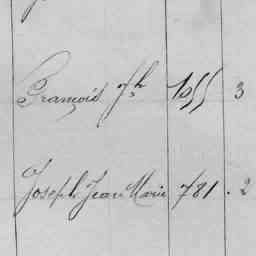 François Jh 1055 3
Joseph Jean Marie 781 . 2